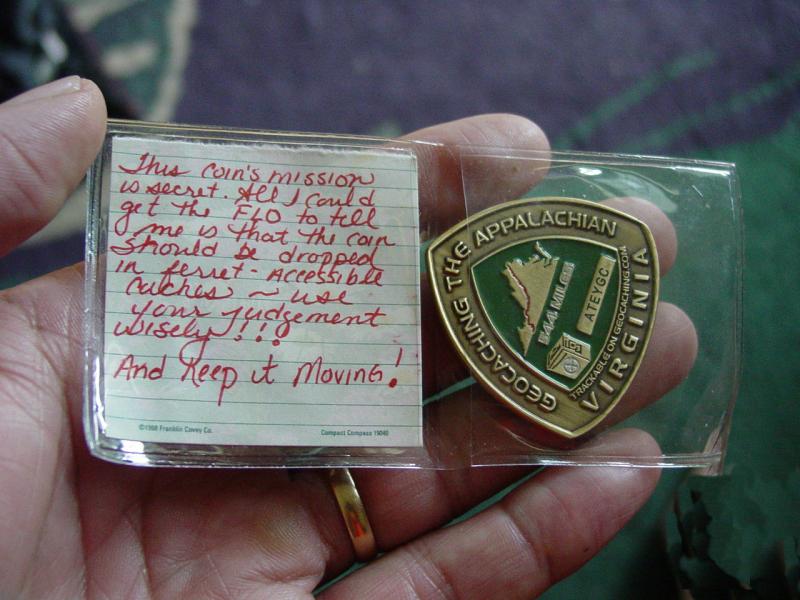 This coin's mission
is secret. All I could
get the FLO to tell
me is that the coin
should be dropped
in ferret-Accessible
caches ~ use
your judgement
wisely!!!
And Keep it Moving!
©1998 Franklin Covey Co.
Compact Compass 19040
GEOCACHING THE APPALACHIAN
544 MILES
ATEYGC
TRACKABLE ON GEOCACHING.COM
VIRGINIA